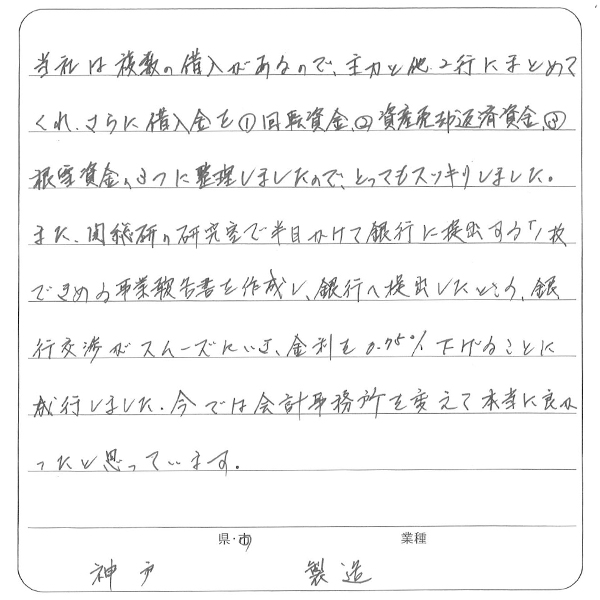 当社は複数の借入があるので、主力と他2行にまとめて
くれ、さらに借入金を①回転資金、②資産売却返済資金、③
根雪資金の3つに整理しましたので、とってもスッキリしました。
また、関総研の研究室で半日かけて銀行に提出する「1枚
できめる事業報告書を作成し、銀行へ提出したところ、銀
行交渉がスムーズにいき、金利を0.75%下げることに
成行しました。今では会計事務所を変えて本当に良か
ったと思っています。
県・市 業種
神戸 製造